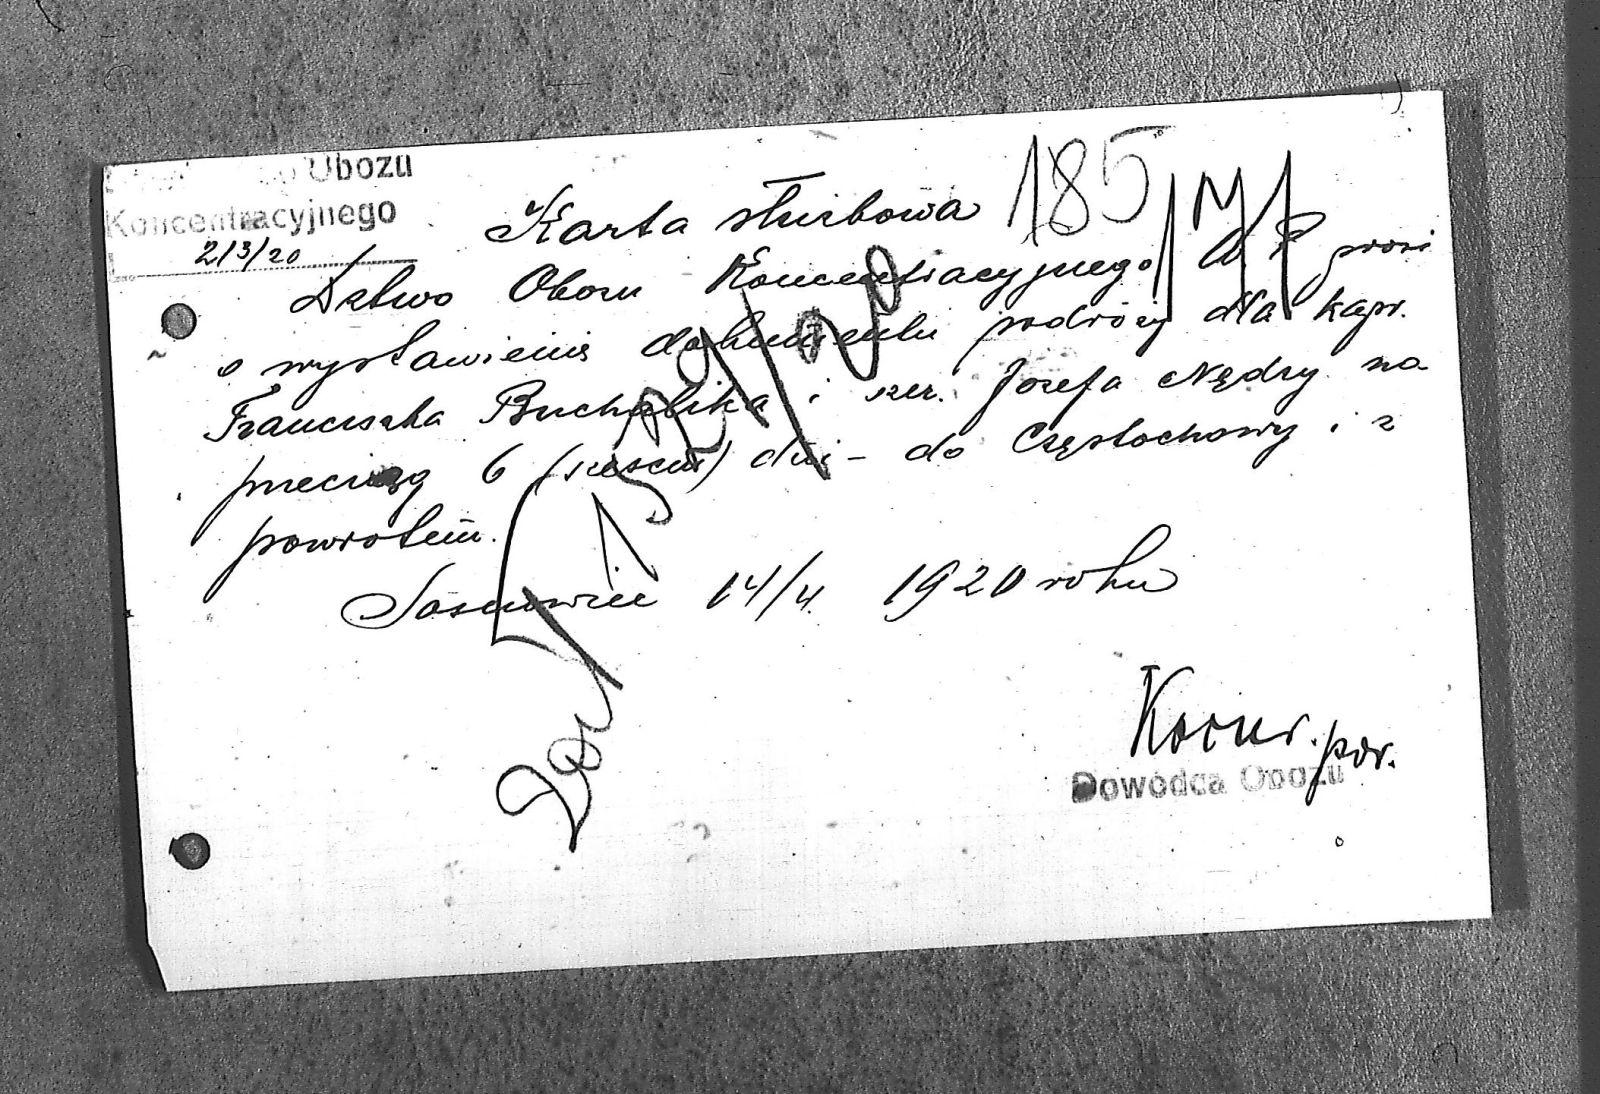 Obozu
Koncentracyjnego
2/3/20
Karta służbowa 185
Dztwo Obozu Koncentracyjnego W P prosi
o wystawienie dokumentu podróży dla kapr.
Franciszka Buchalika i szer. Józefa Nędzy na
przeciąg 6 (sześciu) dni - do Częstochowy i z
powrotem.
Sosnowiec 14/4 1920 roku
por.
Dowódca Obozu